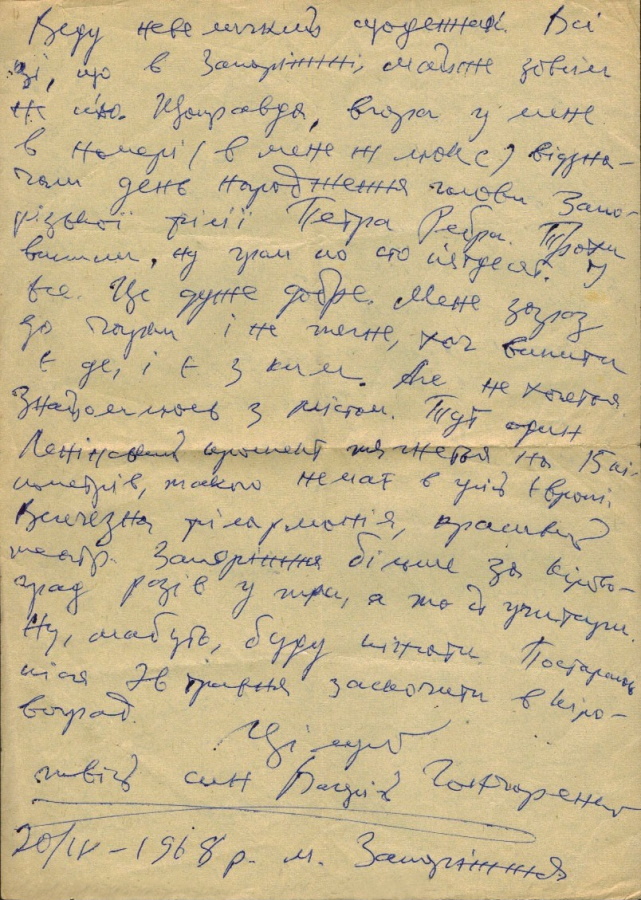 Веду невеличкий щоденник. Всі
ці, що в Запоріжжі, майже зовсім
не п'ю. Щоправда, вчора у мене
в номері (в мене ж люкс) відзна-
чали день народження голови Запо-
різької філії Петра Ребра. Трохи
випили, ну грам по сто п'ятдесят. І
все. Це дуже добре. Мене зараз
до чарки і не тягне, хоч випити
є де, і є з ким. Але не хочеться.
Знайомлюсь з містом. Тут один
Ленінський проспект тягнеться на 15 кі-
лометрів, такого немає в усій Європі.
Величезна філармонія, красивий
театр. Запоріжжя більше за Кірово-
град разів у три, а то й чотири.
Ну, мабуть, буду кінчати. Постараюсь
після травня заскочити в Кіро-
воград.
Цілую
твій син Валерій Гончаренко
20/IV – 1968 р. м. Запоріжжя